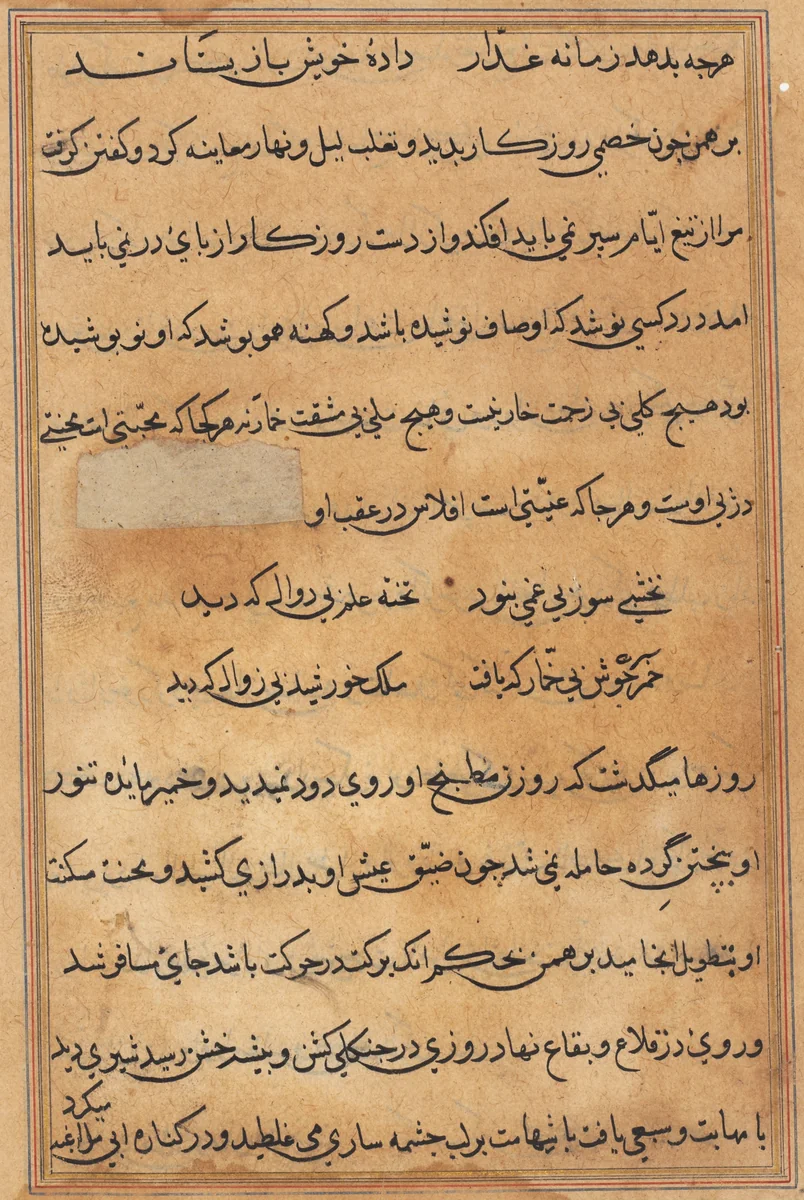 هرجه بدهد زمانه غدّار دادهٔ خویش باز بستاند
برهمن جون خصمی روزکار بدید و تغلب لیل و نهار معاینه کرد و کفتن کرفت
مرا از تیغ ایّام سپر نمی باید افکند و از دست روزکار از بای در نمی باید
امد درد کسی نوشد که او صاف نوشیده باشد و کهنه همو بوشد که او نو بوشیده
بود هیج کلی بی زحمت خار نیست و هیج ملی بی مشقت خمار نه هر کجا که محبّتی است محنتی
در بی اوست و هر جا که غنیّتی است افلاس در عقب او
نخشبی سوز بی غمی بنود تخته علم بی دوالـ که دید
خمر خوش بی خمّار که یافت ملک خورشید بی زوالـ که دید
روزها میگدشت که روزن مطبخ او روی دود نمیدید و خمیر مایده تنور
او بپختن گرده حامله نمی شد جون ضیّق عیش او بدرازی کشید و محنت مکنت
او بتطویل انجامید برهمن بحکم انک برکت در حرکت باشد جای مسافر شد
و روی در قلاع و بقاع نهاد روزی در جنکلی کشن و بیشه خشن رسید شیری دید
با مهابت و سبعی یافت با شهامت برلب جشمه ساری می غلطید و در کناره ابی مراغه
میکرد